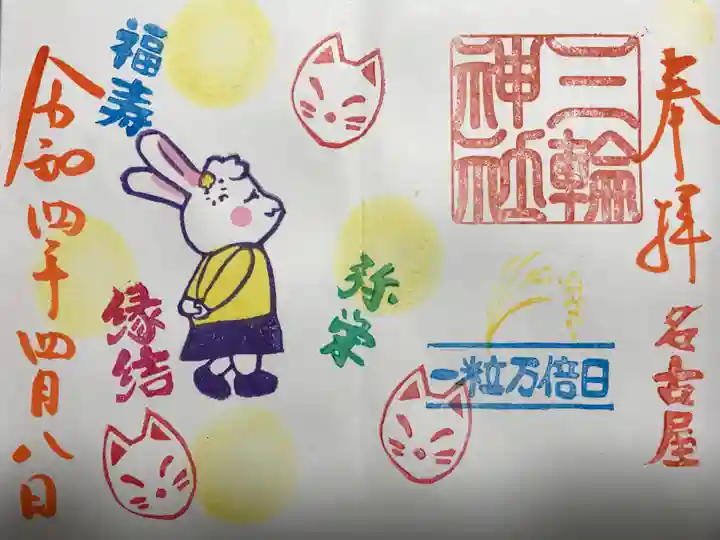 奉拝
名古屋
三輪
神社
一粒万倍日
弥栄
福寿
縁結
令和四年四月八日